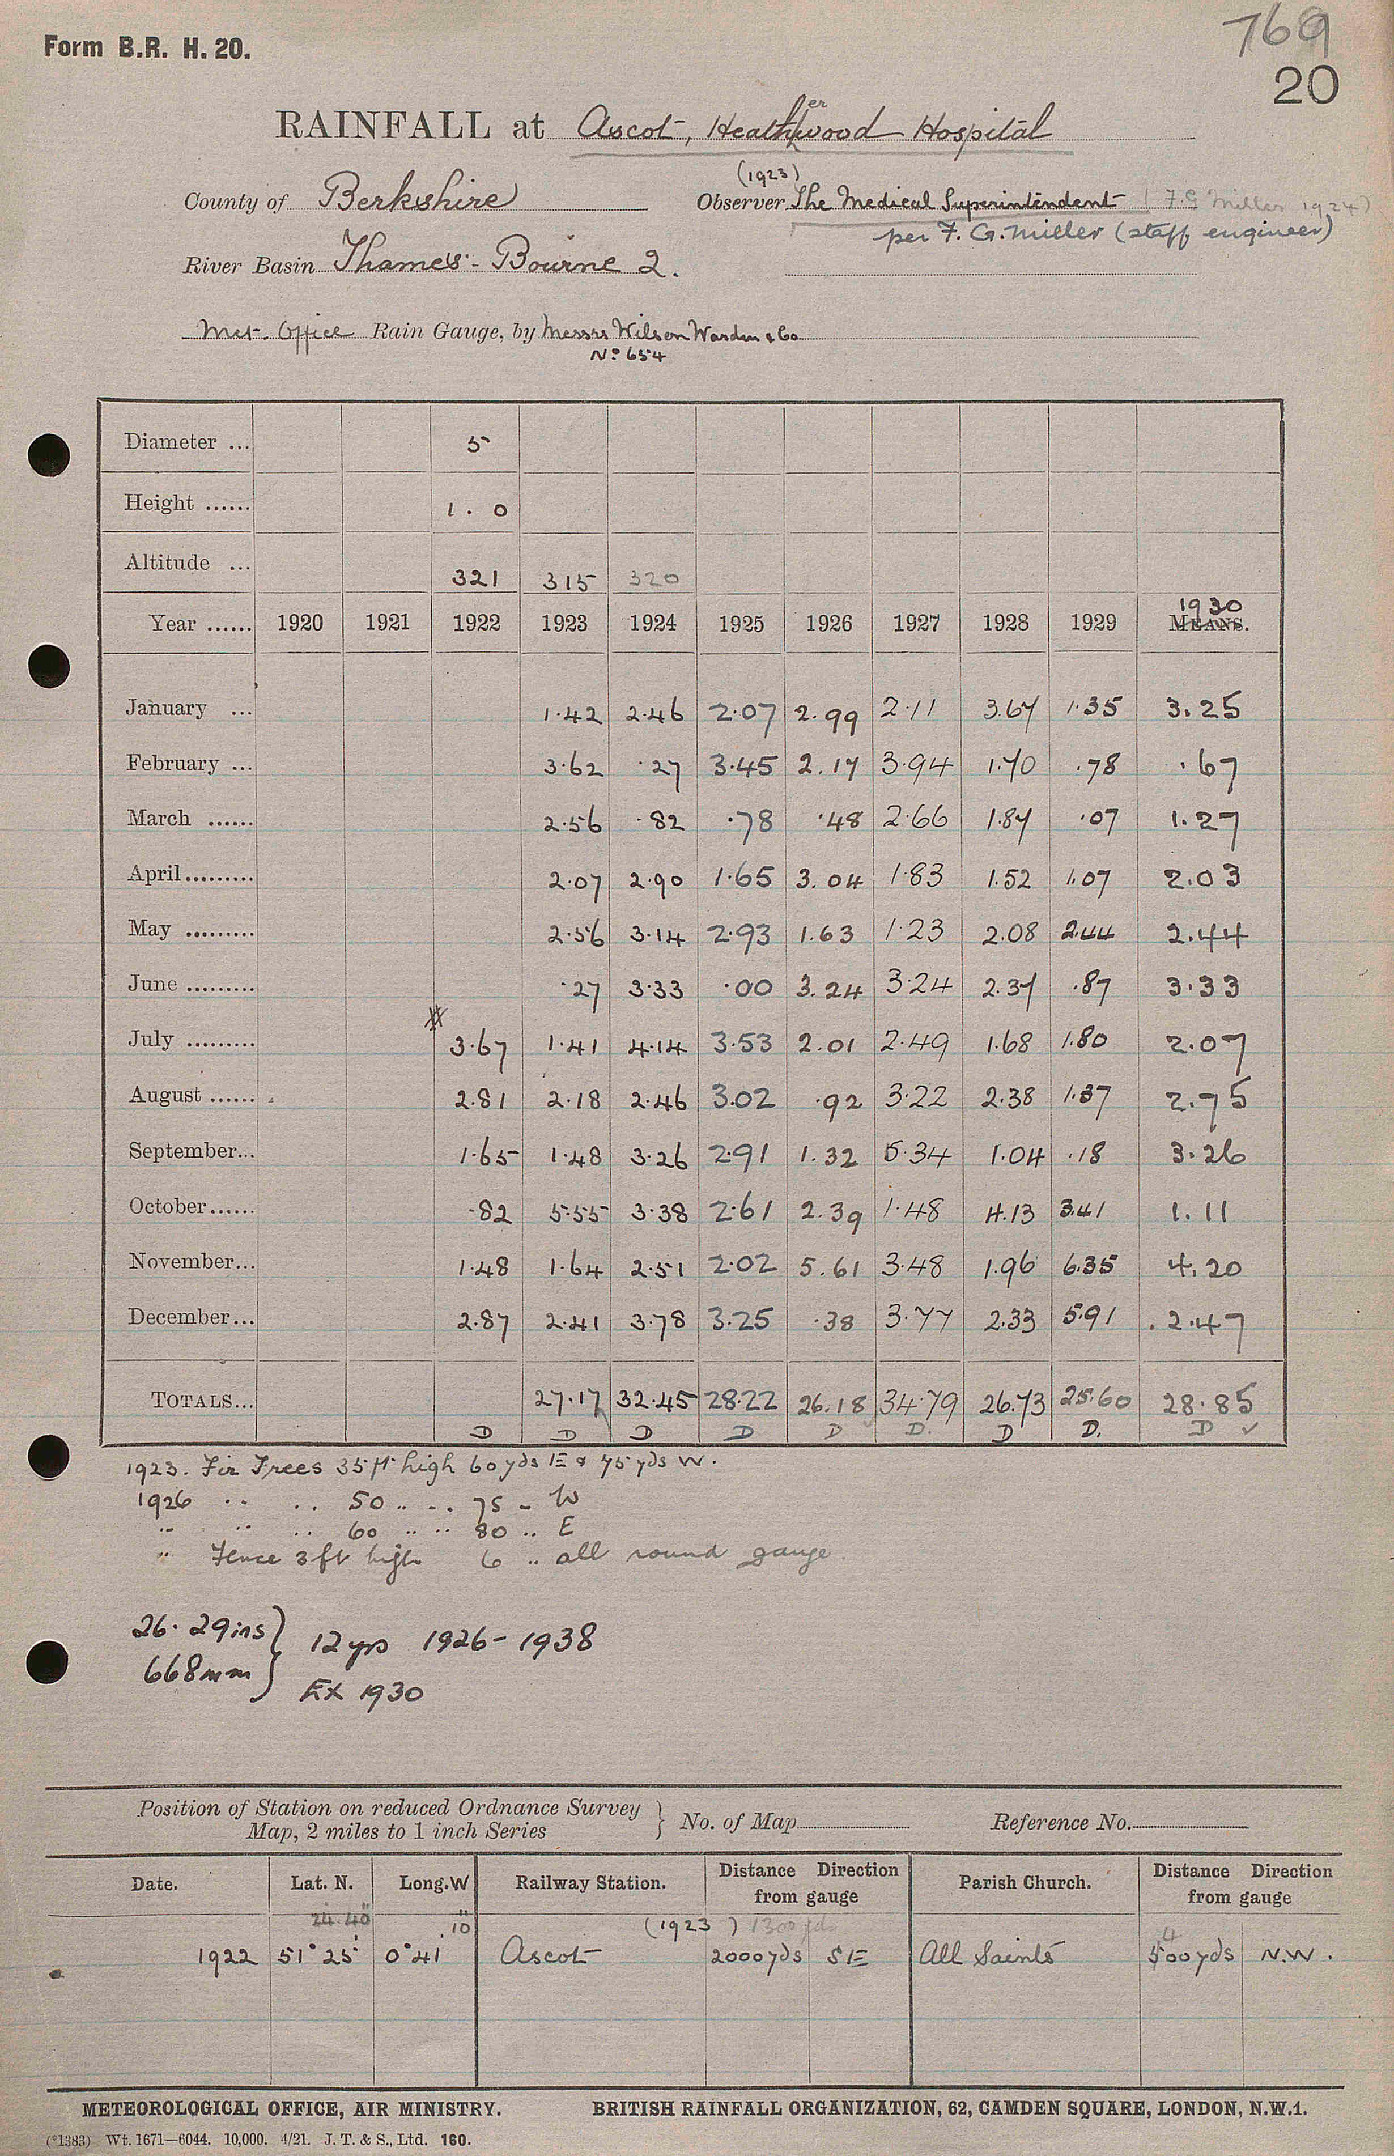 769
Form B.R. H. 20.
20
RAINFALL at Ascot, Heatherwood Hospital
(1923)
County of Berkshire Observer The Medical Superintendent (F.G Miller 1924)
per F. G. Miller (staff engineer)
River Basin Thames - Bourne 2.
Met. Office Rain Gauge, by Messrs Wilson Warden & Co
No. 654
Diameter ... 5
Height ...... 1. 0
Altitude ... 321 315 320
1930
Year ...... 1920 1921 1922 1923 1924 1925 1926 1927 1928 1929 MEANS.
January ... 1.42 2.46 2.07 2.99 2.11 3.67 1.35 3.25
February ... 3.62 .27 3.45 2.17 3.94 1.70 .78 .67
March ...... 2.56 .82 .78 .48 2.66 1.87 .07 1.27
April......... 2.07 2.90 1.65 3.04 1.83 1.52 1.07 2.03
May ......... 2.56 3.14 2.93 1.63 1.23 2.08 2.44 2.44
June ......... .27 3.33 .00 3.24 3.24 2.37 .87 3.33
July ......... 3.67 1.41 4.14 3.53 2.01 2.49 1.68 1.80 2.07
August ...... 2.81 2.18 2.46 3.02 .92 3.22 2.38 1.37 2.75
September... 1.65 1.48 3.26 2.91 1.32 5.34 1.04 .18 3.26
October...... .82 5.55 3.38 2.61 2.39 1.48 4.13 3.41 1.11
November... 1.48 1.64 2.51 2.02 5.61 3.48 1.96 6.35 4.20
December... 2.87 2.41 3.78 3.25 .38 3.77 2.33 5.91 2.47
TOTALS... 27.17 32.45 28.22 26.18 34.79 26.73 25.60 28.85
D D D D D D. D D. D ✓
1923. Fir Trees 35 ft high 60 yds E & 75 yds W.
1926 .. .. 50 .. .. 75 - W
.. .. .. 60 .. .. 80 .. E
" Fence 3 ft high 6 .. all round gauge
26.29 ins } 12 yrs 1926-1938
668 mm } Ex 1930
Position of Station on reduced Ordnance Survey
Map, 2 miles to 1 inch Series } No. of Map Reference No.
Date. Lat. N. Long. W Railway Station. Distance Direction from gauge Parish Church. Distance Direction from gauge
24 40" 10" (1923) 1300 yds 4
1922 51° 25' 0° 41' Ascot 2000 yds SE All Saints 500 yds N.W.
METEOROLOGICAL OFFICE, AIR MINISTRY. BRITISH RAINFALL ORGANIZATION, 62, CAMDEN SQUARE, LONDON, N.W.1.
(*1383) Wt. 1671—6044. 10,000. 4/21. J. T. & S., Ltd. 160.